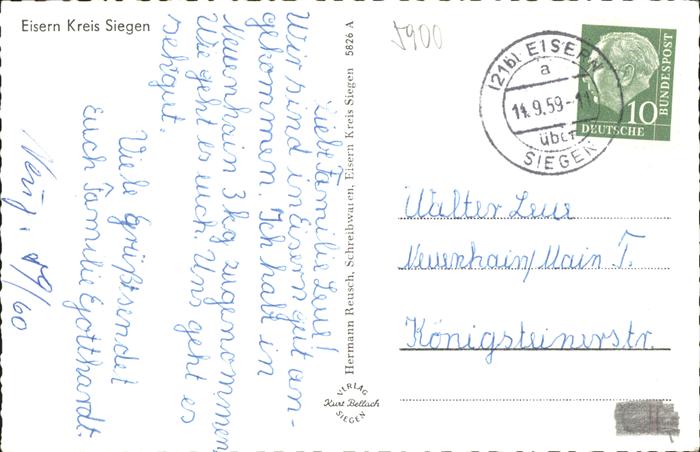 Eisern Kreis Siegen
5900
(21b) EISERN
a
11.9.59-11
über
SIEGEN
10
DEUTSCHE
BUNDESPOST
Liebe Familie Leus!
Wir sind in Eisern gut an-
gekommen. Ich hab in
Neuenhain 3 kg zugenommen,
Wie geht es euch. Uns geht es
sehr gut.
Viele Grüße sendet
Euch Familie Gotthardt.
59/60
Hermann Reusch, Schreibwaren, Eisern Kreis Siegen 5826 A
VERLAG
Kurt Bellach
SIEGEN
Walter Leus
Neuenhain/Main T.
Königsteinerstr.